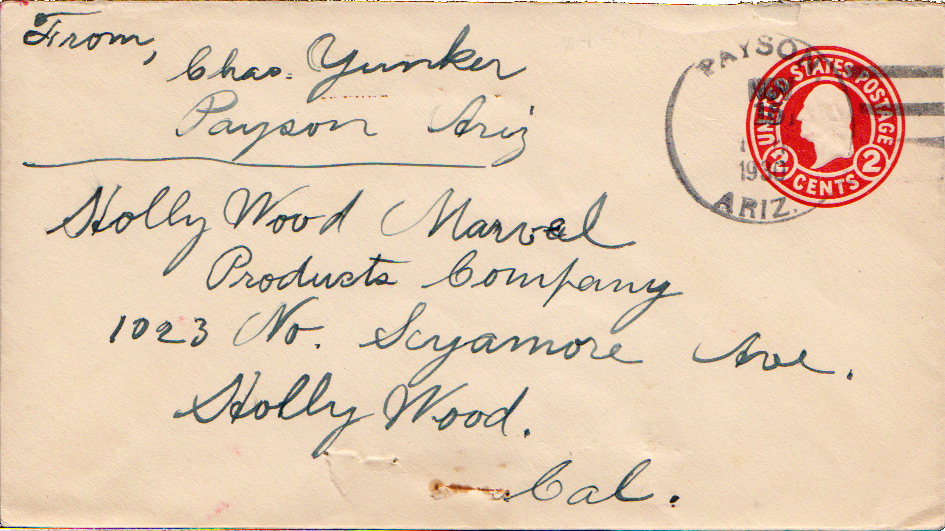 From,
Chas. Yunker
Payson Ariz
Holly Wood Marvel
Products Company
1023 No. Scyamore Ave.
Holly Wood.
Cal.
PAYSON
1930
ARIZ.
UNITED STATES POSTAGE
2 CENTS 2